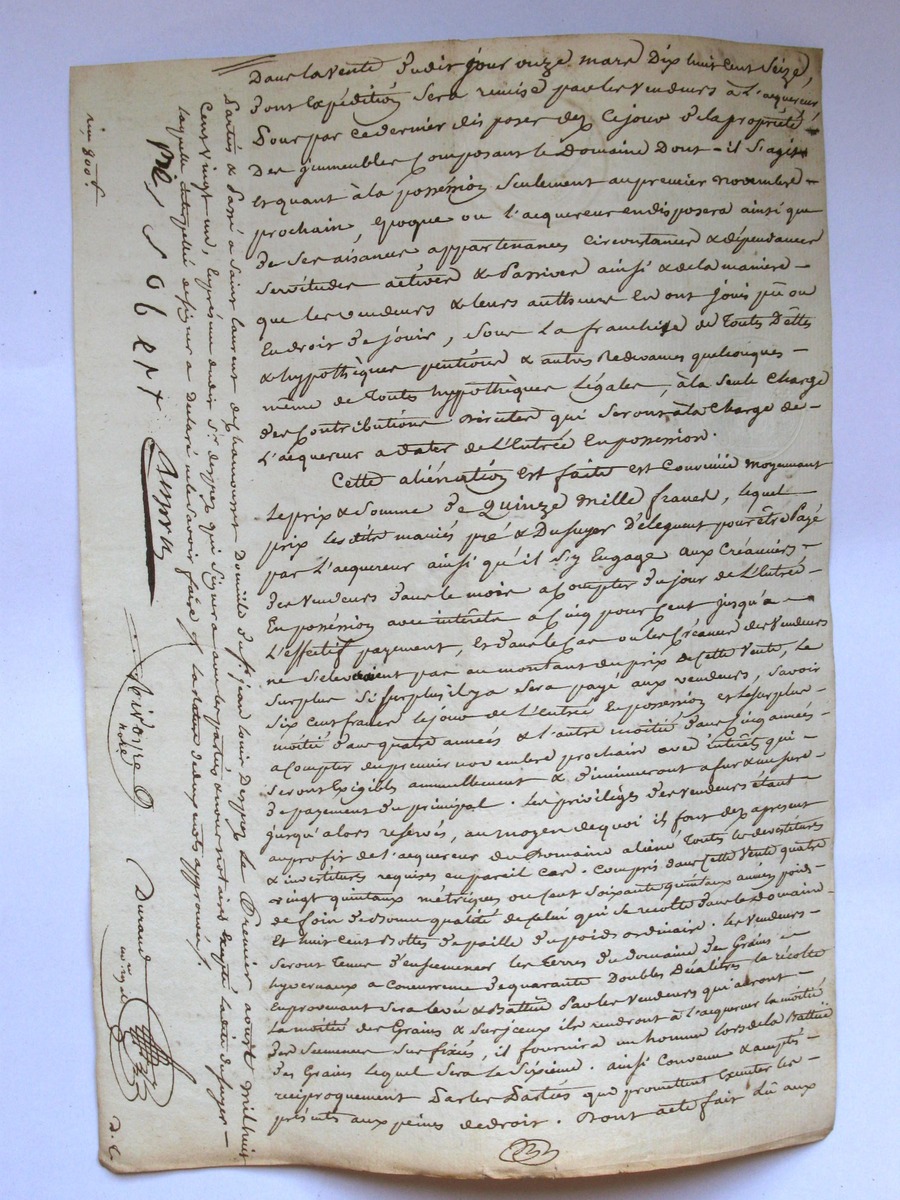 Dans la vente dudit jour onze mars Dix huit cent Seize,
dont Expédition Sera remise par les Vendeurs à L'acquereur,
Pour par ce dernier disposer dez Ce jour de la propriété
Des immeubles Composant le Domaine Dont il S'agit
et quant à la possession Seulement au premier novembre
prochain, époque ou l'acquereur en disposera ainsi que
de Ses aisances appartenances Circonstances & dépendances
Servitudes actives & Passives ainsi & de la maniere
que les vendeurs & leurs autheurs En ont joui pû ou
En droit de jouir, Sous La franchise de Toutes Dêttes
& hypothèques pentions & autres Redevances quelconques
même de Toutes hypothèques Légales, à la Seule Charge
des Contributions Directes qui Seront à la Charge de
L'acquereur a Dater de L'Entrée En possession.
Cette aliénation Est faite est Convenüe moyennant
Le prix & Somme de Quinze mille francs, lequel
prix les dits mariés pré & Dufuyer Délèguent pour être Payé
par L'acquereur ainsi qu'il S'y Engage aux Créanciers
des Vendeurs dans le mois a Compter du jour de L'Entrée
En possession avec intérêts a Cinq pour Cent jusqu'a
L'effectif payement, Et dans le Cas ou les Créances des Vendeurs
ne S'eleveroient pas au montant du prix de Cette Vente, Le
Surplus Si Surplus il y a Sera payé aux vendeurs, Savoir
Six Cent francs le jour de L'Entrée En possession et le Surplus
moitié dans quatre années & l'autre moitié dans Cinq années
a Compter du premier novembre prochain avec intérêts qui
Seront Exigibles annuellement & diminueront a fur & mesure
de payement du principal. Les privilèges des Vendeurs étant
jusqu'alors reservés, au moyen de quoi il font dez apresent
au profit de l'acquereur du Domaine aliéné Toutes les devestitures
& investitures requises en pareil cas. Compris dans Cette Vente quatre
vingt quintaux métriques ou Cent Soixante quintaux anciens poids
de foin de Bonne qualité de Celui qui Se recolte dans le domaine
Et huit Cent Bottes de paille du poids ordinaire. Les Vendeurs
Seront Tenus d'ensemencer les Terres du domaine des Grains
hyvernaux a Concurrence de quarante Doubles Décalitres la récolte
En provenant Sera levée & Battüe Par les Vendeurs qui auront
La moitié des Grains & Sur jceux ils rendront à l'acquereur la moitié
des Semences Sus fixées, il fournira un homme lors de la Battüe
des Grains lequel Sera le Sixième. ainsi Convenu & accepté
reciproquement Par les Parties que promettent Executer les
présents aux peines de droit. Dont acte fait Lû aux
Parties & Passé a Saint Laurent de Chamousset Domicile du Sr jean Louis Dezpoz Le Premier aoust mil huit
Cent vingt un, En présence dudit Sr. dezpoz qui Signera avec les parties & nous notaires Excepté la dite Dufuyer
laquelle interpellée de Signer a Declaré ne le Savoir faire / La rature de deux mots approuvée /
rin, 800 f.
Durand
D. C